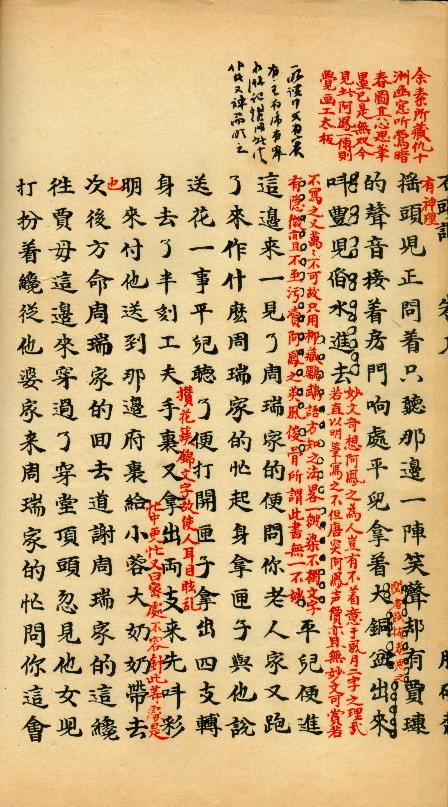 余素所藏仇十
洲幽窓听莺暗
春圖其心思筆
墨已是無双今
見此阿鳳一傳則
覺画工太板
有神理
揺頭児正問着只聽那邊一陣笑聲却有賈璉
的聲音接着房門响處平兒拿着大銅盆出來
叫豐児舀水進去
妙文奇想阿鳳之為人豈有不着意于風月二字之理哉
若直以明筆寫之不但唐突阿鳳声價亦且無妙文可賞若
不寫之又萬〻不可故只用柳藏鸚鵡語方知之法畧一皴染不獨文字
有隱微亦且不至污瀆阿鳳之英風俊骨所謂此書無一不妙
平兒便進
這邊来一見了周瑞家的便問你老人家又跑
了來作什麽周瑞家的忙起身拿匣子與他說
送花一事平兒聽了便打開匣子拿出四支轉
攢花簇錦文字故使人耳目眩乱
身去了半刻工夫手裏又拿出両支来先叫彩
明来付他送到那邊府裏給小蓉大奶奶帶去
忙中更忙又曰密處不容針此等處是
也
次後方命周瑞家的回去道謝周瑞家的這纔
往賈母這邊來穿過了穿堂頂頭忽見他女児
打扮着纔從他婆家来周瑞家的忙問你這會